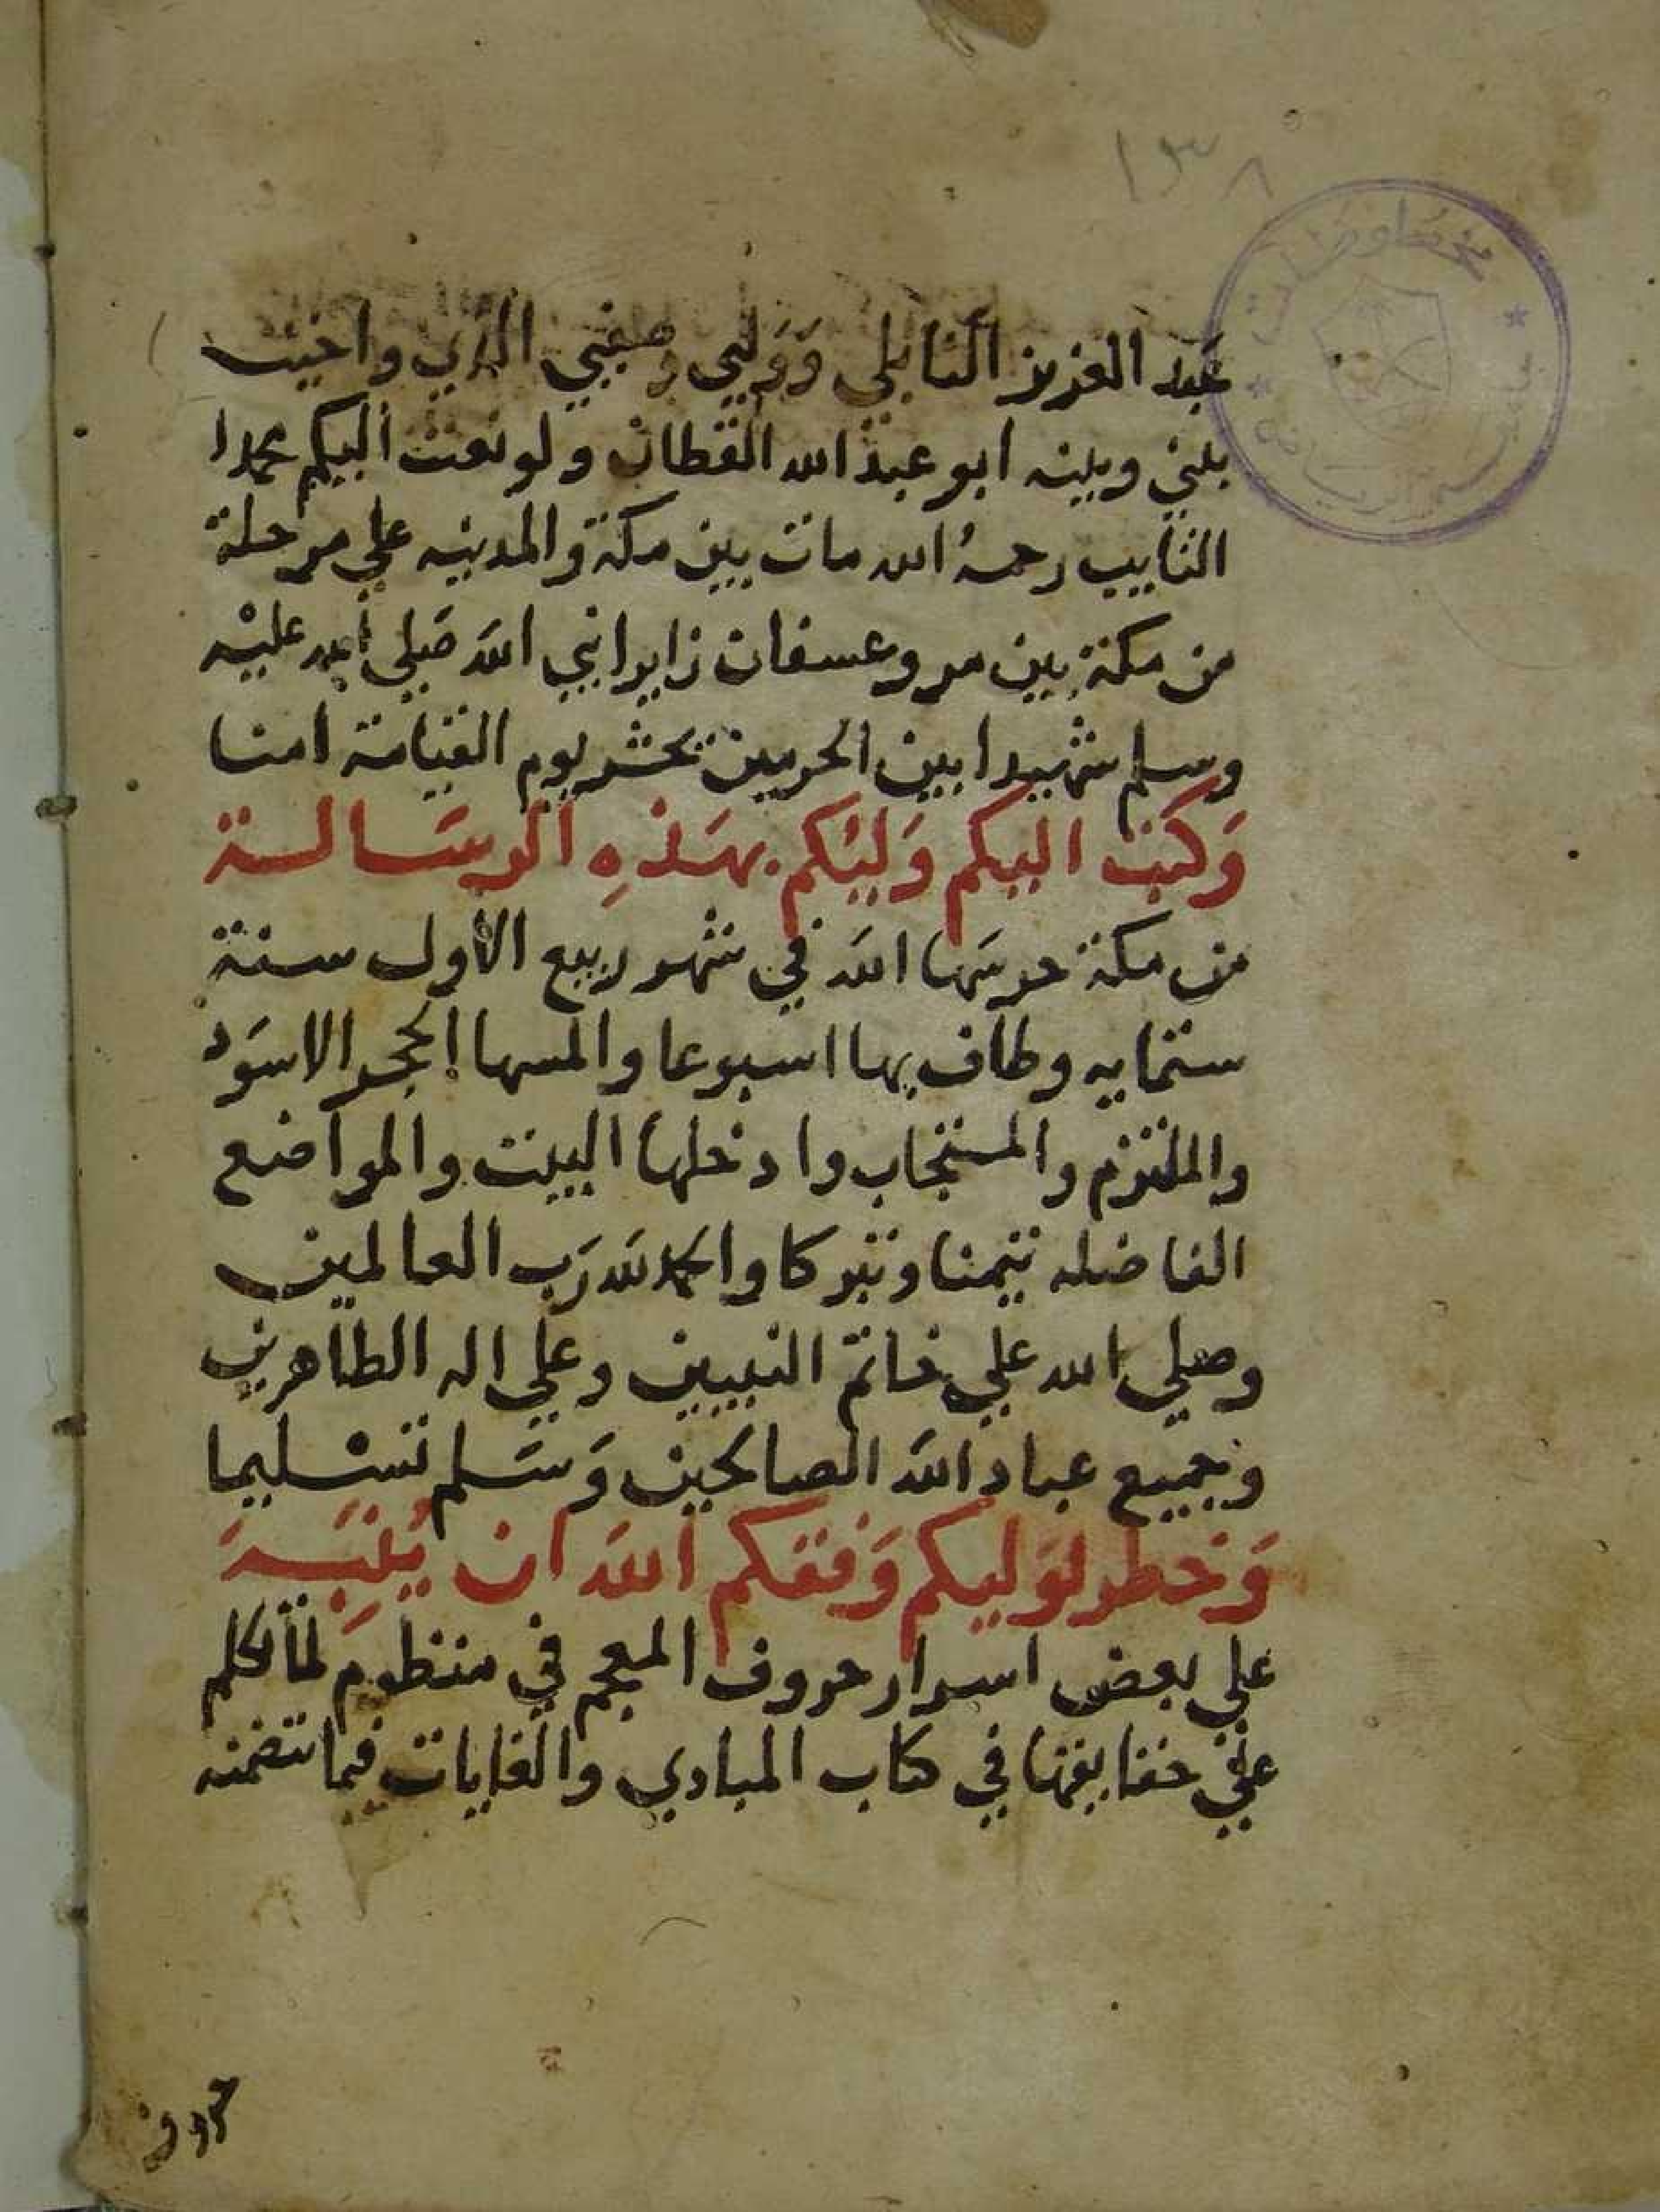 ١٣٨
مخطوطات
عبد العزيز التابلي ووليي وصفيي الذي واخيت
بيني وبينه ابو عبد الله القطان ولو نعت اليكم محمدا
التايب رحمهُ الله مات بين مكة والمدينه علي مرحلة
من مكة بين مر وعسفان زايرا نبي الله صَلي الله عليْه
وسلم شهيدا بين الحرمين يحشر يوم القيامة امنا
وَكتب اليكم وَليّكم بهَذهِ الرسَالة
من مكة حرسَها الله في شهر ربيع الأول سنة
ستمايه وطاف بها اسبوعا والمسها الحجر الاسوَد
والملتزم والمستجاب وادخلها البيت والمواضع
الفاضله تيمنا وتبركا والحمد لله رَب العالمين
وصلي الله علي خاتم النبيين وعلي اله الطاهرين
وجميع عباد الله الصالحين وَسَلم تسْليما
وَخطر لوَليكم وَفقكم الله ان يُنَبِّهَ
علي بعض اسرار حروف المعجم في منظوم لما تكلم
علي حقايقها في كتاب المبادي والغايات فيما تتضمنه
حروف